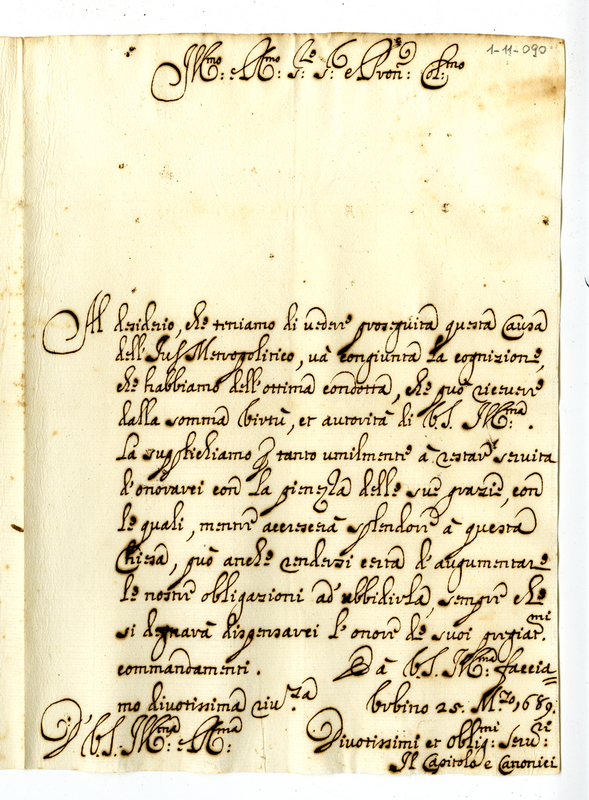 1-11-090
Ill:mo e R:mo S.re S. e Pron: Col:mo
Al desiderio, che teniamo di vedere proseguita questa Causa
dell'Jus Metropolitico, và congiunta la cognizione,
che habbiamo dell'ottima condotta, che può ricevere
dalla somma Virtù, et autorità di V.S. Ill:ma.
La supplichiamo p tanto umilmente à restar servita
d'onorarci con la pienezza delle sue grazie, con
le quali, mentre accrescerà splendore à questa
Chiesa, può anche rendersi certa d'augumentare
le nostre obligazioni ad'ubbidirla, sempre che
si degnarà dispensarci l'onore de suoi pregiat.mi
commandamenti. Ed à V.S. Ill:ma faccia=
mo divotissima riv.za Urbino 25. M.zo 1689.
D' V.S. Ill:ma e R:ma Divotissimi et oblig:mi Serv:ri
Il Capitolo e Canonici